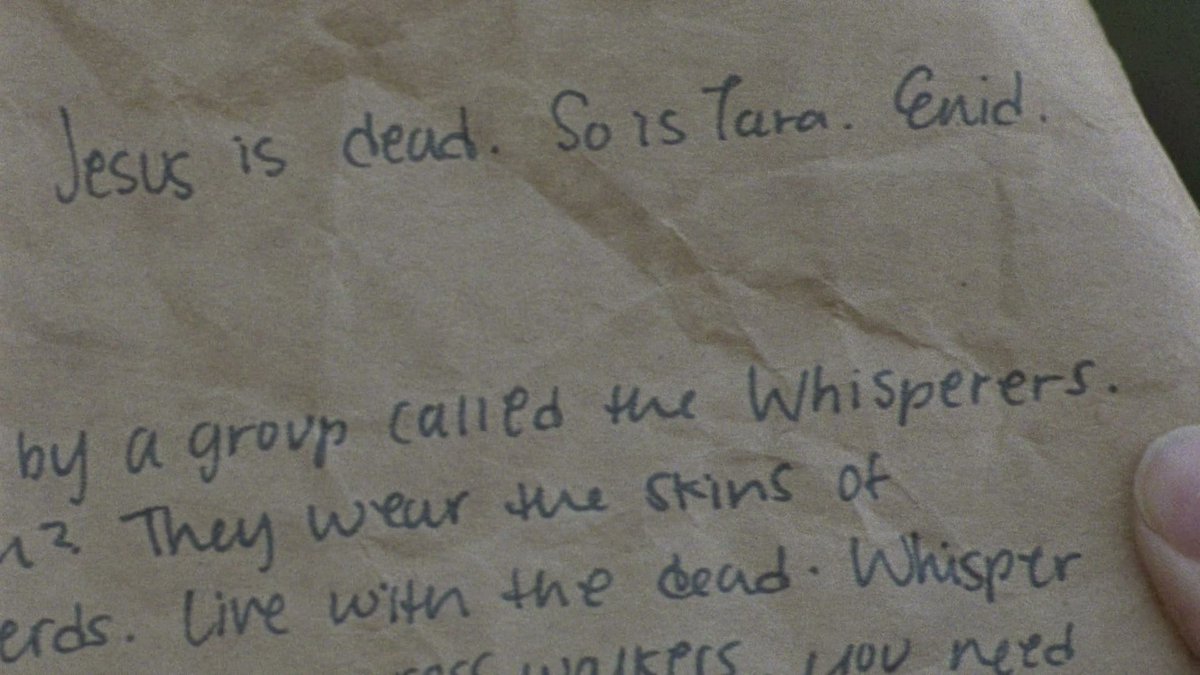 Jesus is dead. So is Tara. Enid.
by a group called the Whisperers.
They wear the skins of
erds. Live with the dead. Whisper
walkers you need